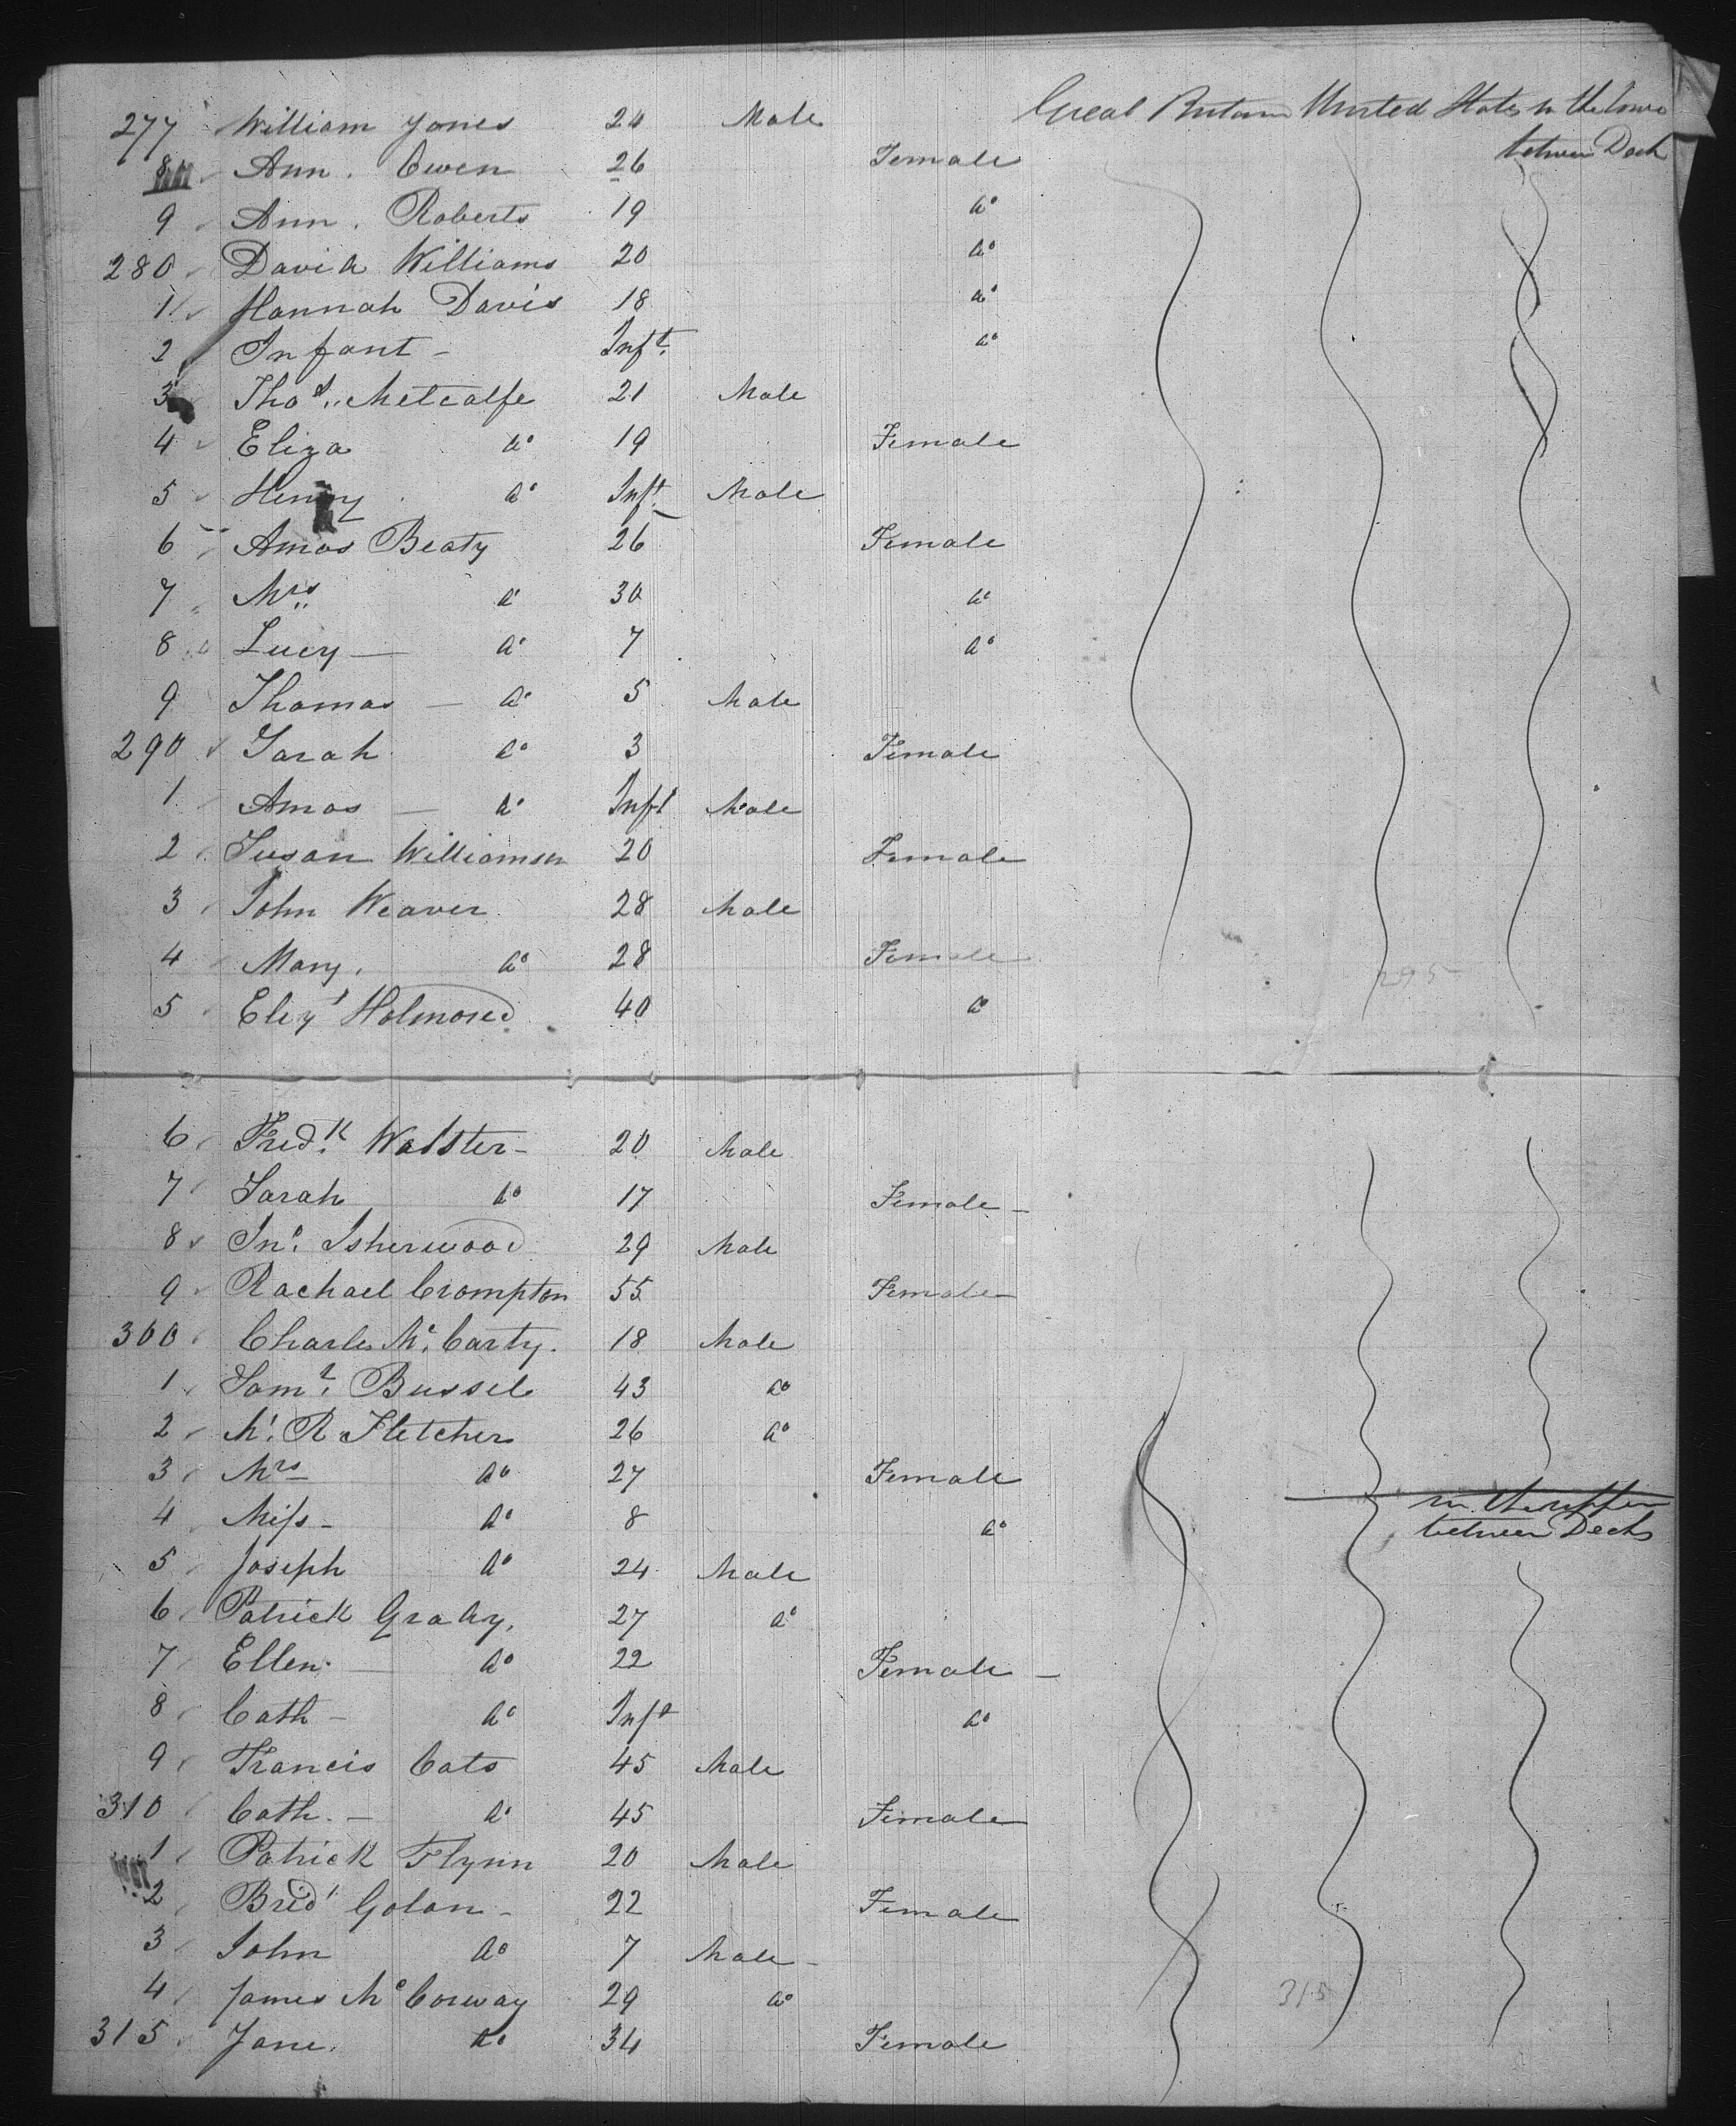 277 William Jones 24 Male Great Britain United States in the lower
between Deck
8 Ann. Owen 26 Female
9 Ann. Roberts 19 do
280 David Williams 20 do
1 Hannah Davis 18 do
2 Infant - Inft. do
3 Thos. Metcalfe 21 Male
4 Eliza do 19 Female
5 Henry do Inft. Male
6 Amos Beaty 26 Female
7 Mrs do 30 do
8 Lucy — do 7 do
9 Thomas — do 5 Male
290 Sarah do 3 Female
1 Amos — do Inft Male
2 Susan Williamson 20 Female
3 John Weaver 28 Male
4 Mary. do 28 Female
295
5 Elizt 40 do
6 Fredk. Wabster - 20 Male
7 Sarah do 17 Female -
8 Jno. Isherwood 29 Male
9 Rachael Crompton 55 Female
300 Charles Mc. Carty. 18 Male
1 Saml. Bussel 43 do
2 Mr. R Fletcher 26 do
3 Mrs do 27 Female
in the upper
4 Miss - do 8 do between Decks
5 Joseph do 24 Male
6 Patrick Grady. 27 do
7 Ellen. — do 22 Female -
8 Cath - do Inft do
9 Francis Cats 45 Male
310 Cath. - do 45 Female
1 Patrick Flynn 20 Male
2 Bridt Golan - 22 Female
3 John do 7 Male -
4 James Mc Corway 29 do 315
315 Jane. do 34 Female